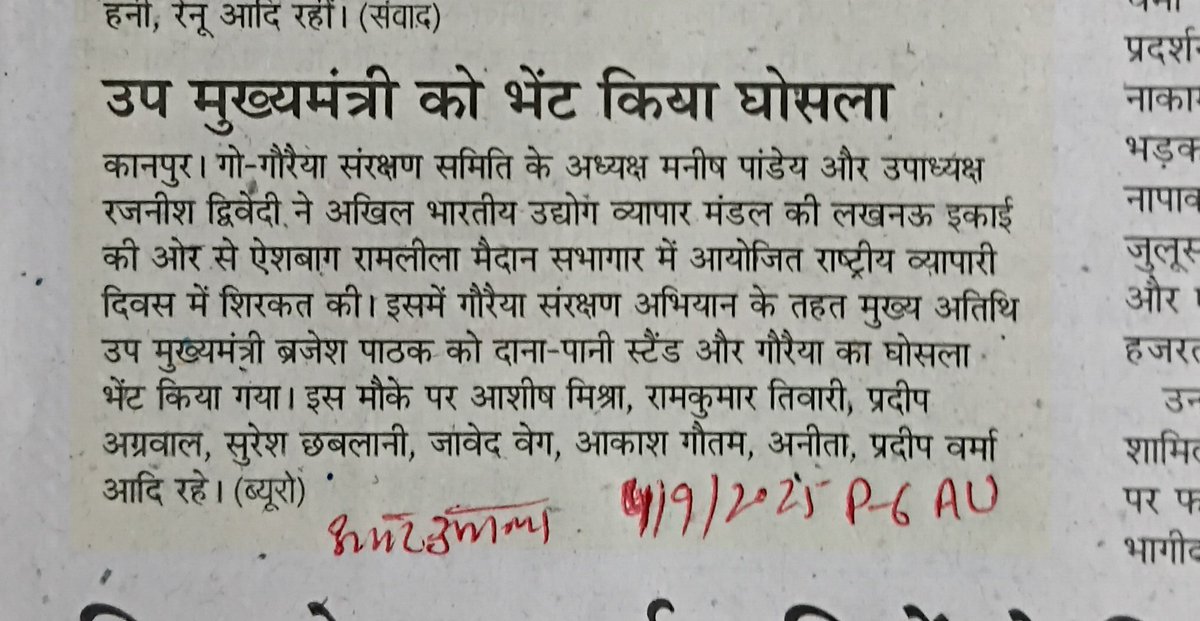 हनी, रेनू आदि रहीं। (संवाद)
उप मुख्यमंत्री को भेंट किया घोसला
कानपुर। गो-गौरैया संरक्षण समिति के अध्यक्ष मनीष पांडेय और उपाध्यक्ष
रजनीश द्विवेदी ने अखिल भारतीय उद्योग व्यापार मंडल की लखनऊ इकाई
की ओर से ऐशबाग रामलीला मैदान सभागार में आयोजित राष्ट्रीय व्यापारी
दिवस में शिरकत की। इसमें गौरैया संरक्षण अभियान के तहत मुख्य अतिथि
उप मुख्यमंत्री ब्रजेश पाठक को दाना-पानी स्टैंड और गौरैया का घोसला
भेंट किया गया। इस मौके पर आशीष मिश्रा, रामकुमार तिवारी, प्रदीप
अग्रवाल, सुरेश छबलानी, जावेद वेग, आकाश गौतम, अनीता, प्रदीप वर्मा
आदि रहे। (ब्यूरो)
अमर उजाला 4/9/2025 P-6 AU
और
हजरत
उन
पर